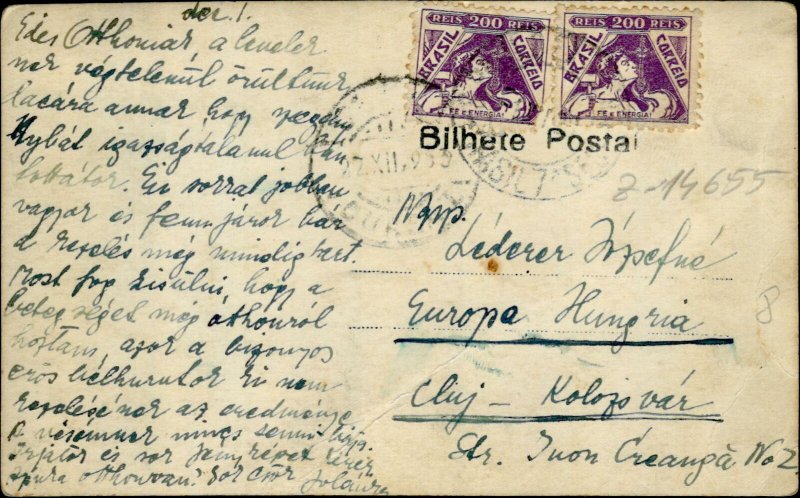 dec. 1.
Edes Otthoniak, a levelek
nek végtelenül örültünk
dacára annak hogy szegény
Hybát igazságtalanul bán
tottátok. Én sokkal jobban
vagyok és fenn járok bár
a kezelés még mindig tart.
most fog kisülni, hogy a
betegséget még otthonról
hoztam, azok a bizonyos
erős bélhurutok ki nem
kezelésének az eredménye
A vésémnek nincs semmi baja.
otthonvan? Sok csók
REIS 200 REIS
BRASIL CORREIO
FÉ E ENERGIA
REIS 200 REIS
BRASIL CORREIO
FÉ E ENERGIA
Bilhete Postal
Z-14655
Ngs.
Léderer Józsefné
Europa Hungria
Cluj - Kolozsvár
Str. Ivon Creangă No 2
8